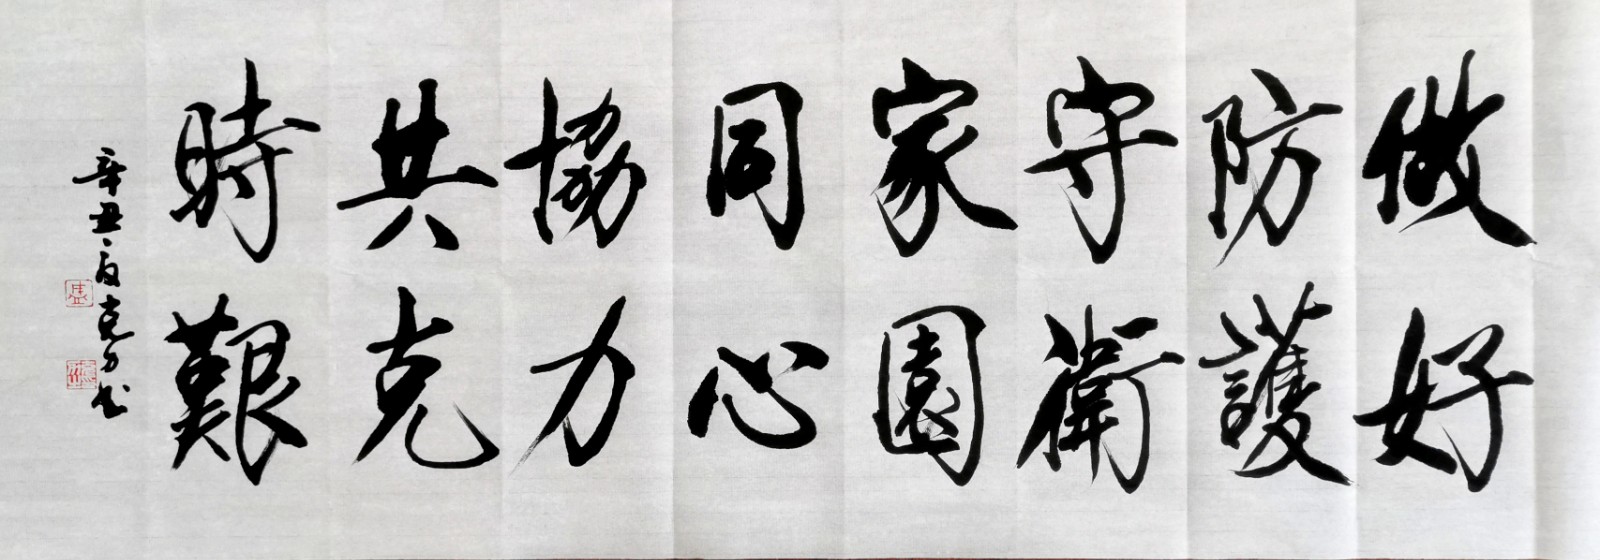 做好
防護
守衛
家園
同心
協力
共克
時艱
辛丑夏克力書